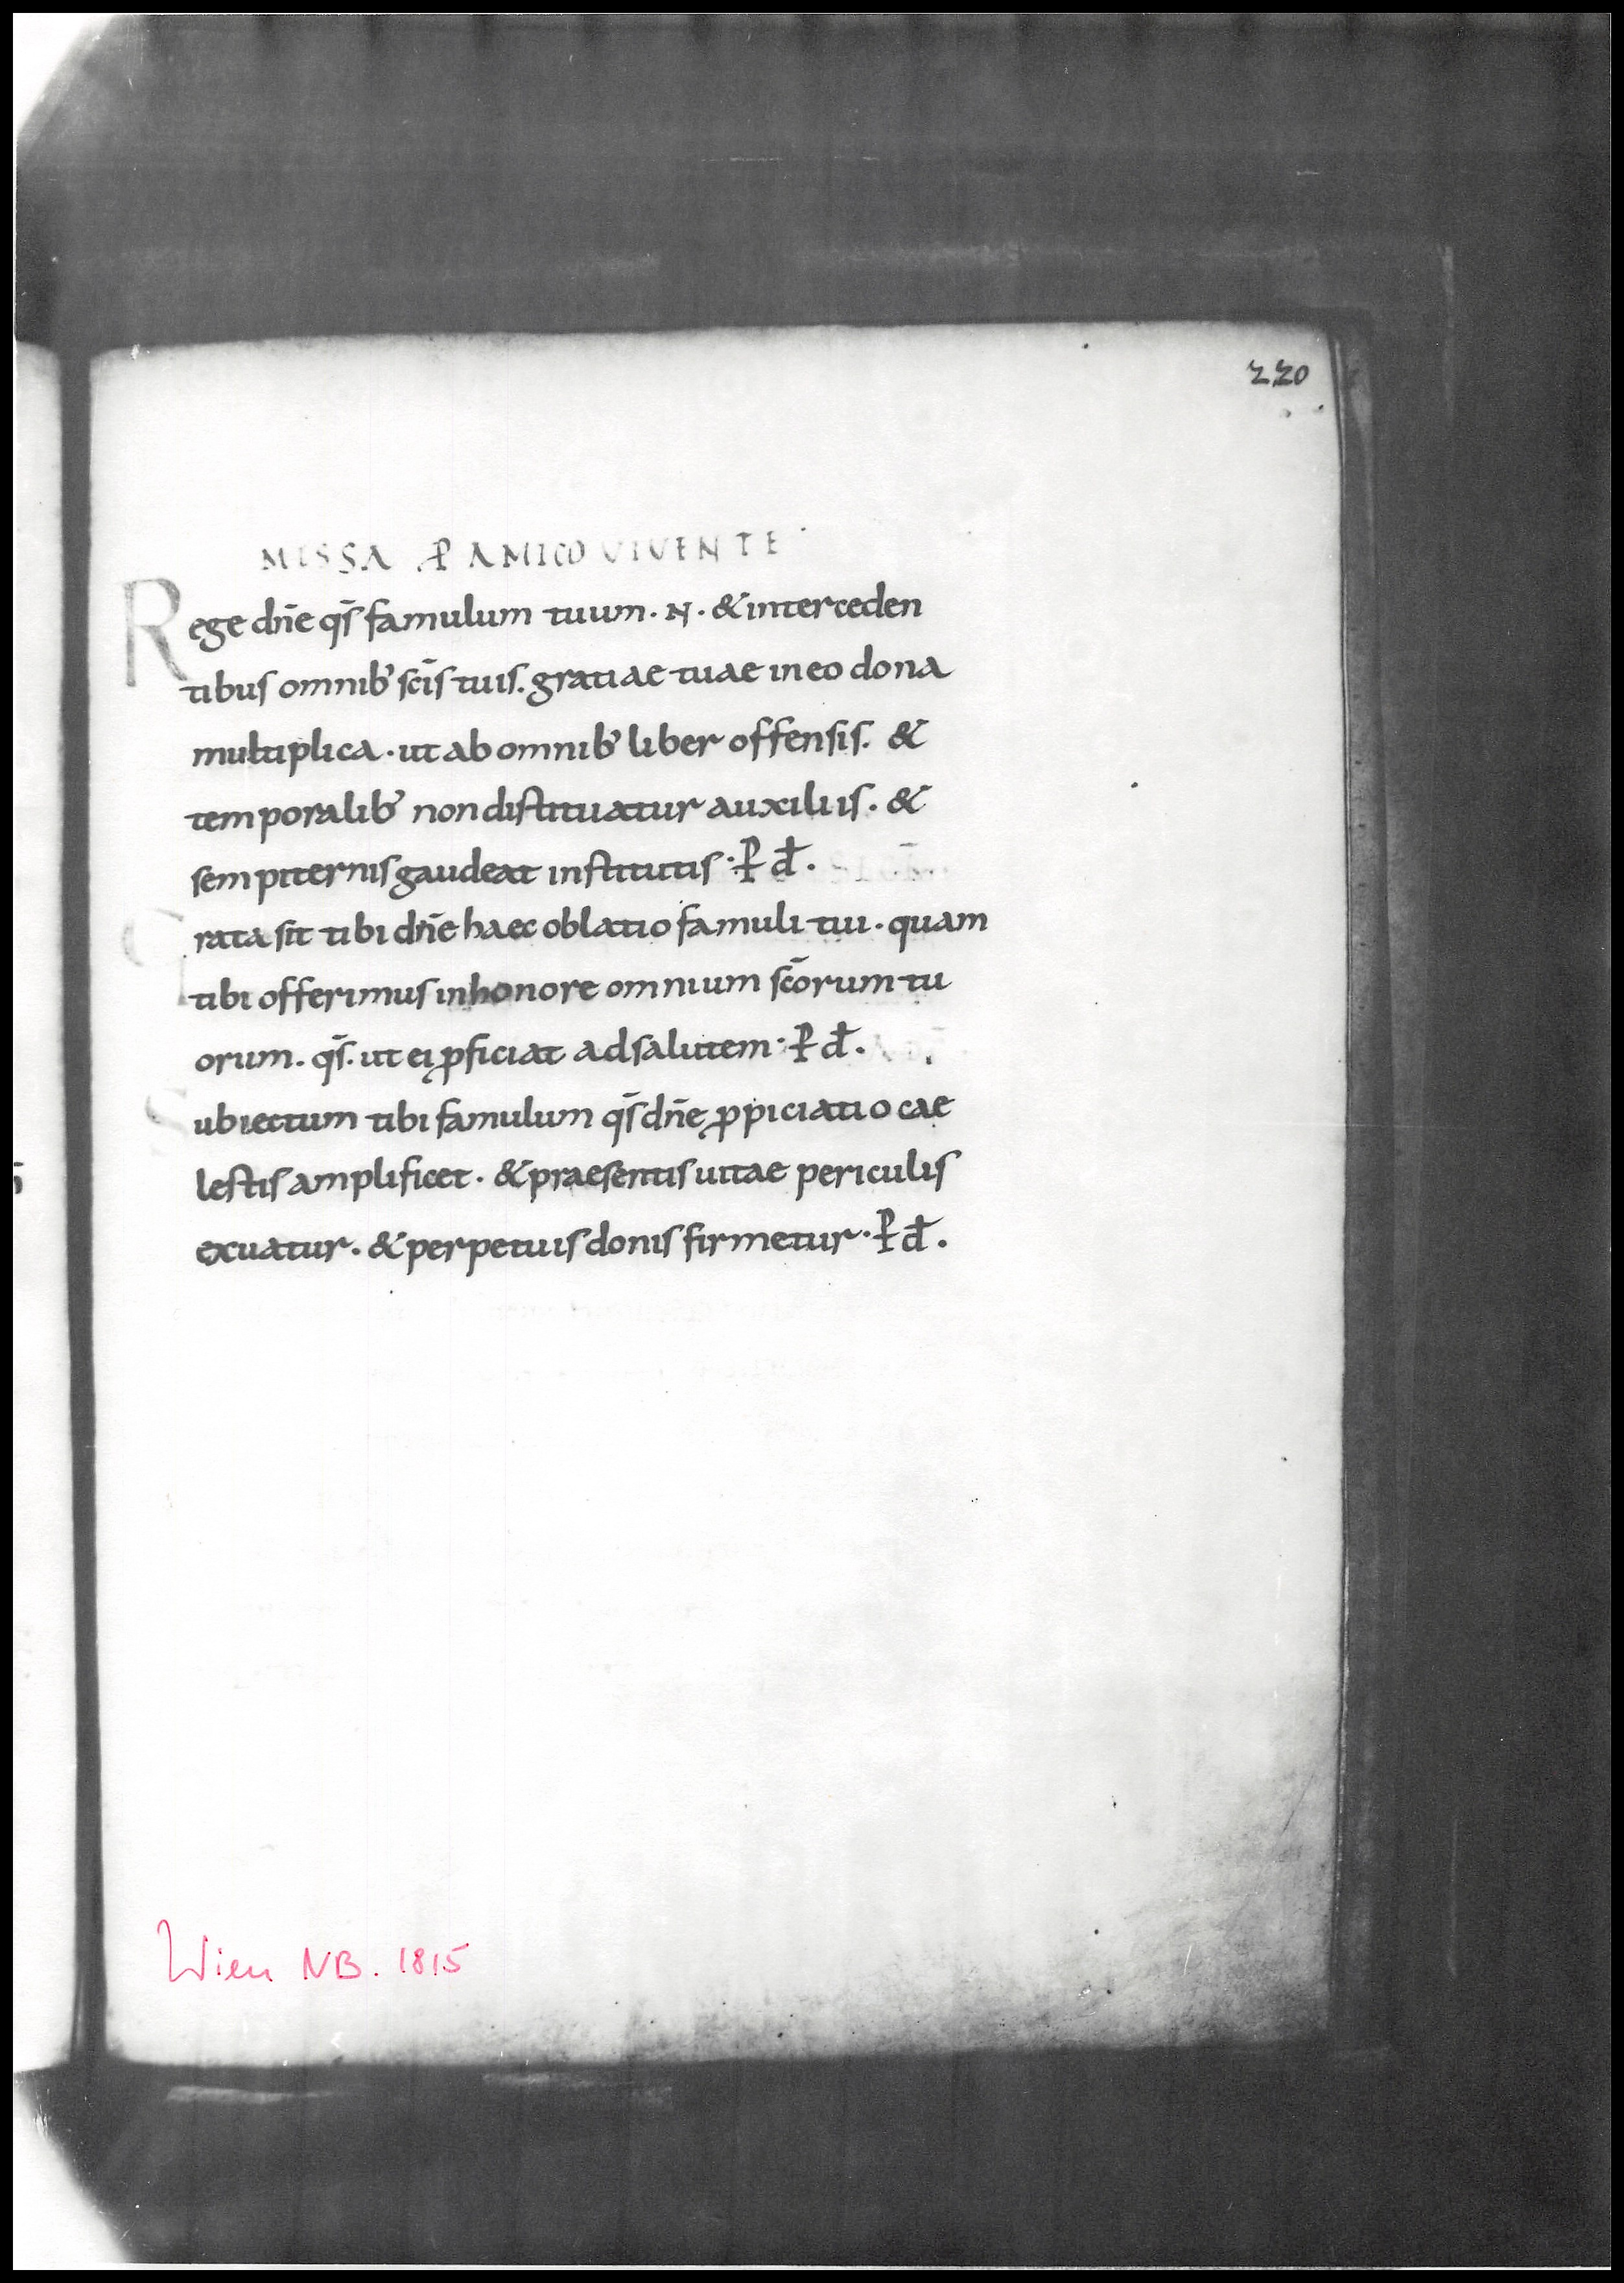 220
MISSA ꝓ AMICO VIVENTE
Rege dn̄e qs̄ famulum tuum. N. & interceden
tibus omnib; sc̄is tuis. gratiae tuae in eo dona
multiplica. ut ab omnib; liber offensis. &
temporalib; non distituatur auxiliis. &
sempiternis gaudeat institutis. ꝑ d̄.
Grata sit tibi dn̄e haec oblatio famuli tui. quam
tibi offerimus in honore omnium sc̄orum tu
orum. qs̄. ut ei ꝓficiat ad salutem. ꝑ d̄.
Subiectum tibi famulum qs̄ dn̄e ꝓpiciatio cae
lestis amplificet. & praesentis uitae periculis
exuatur. & perpetuis donis firmetur. ꝑ d̄.
Wien NB. 1815